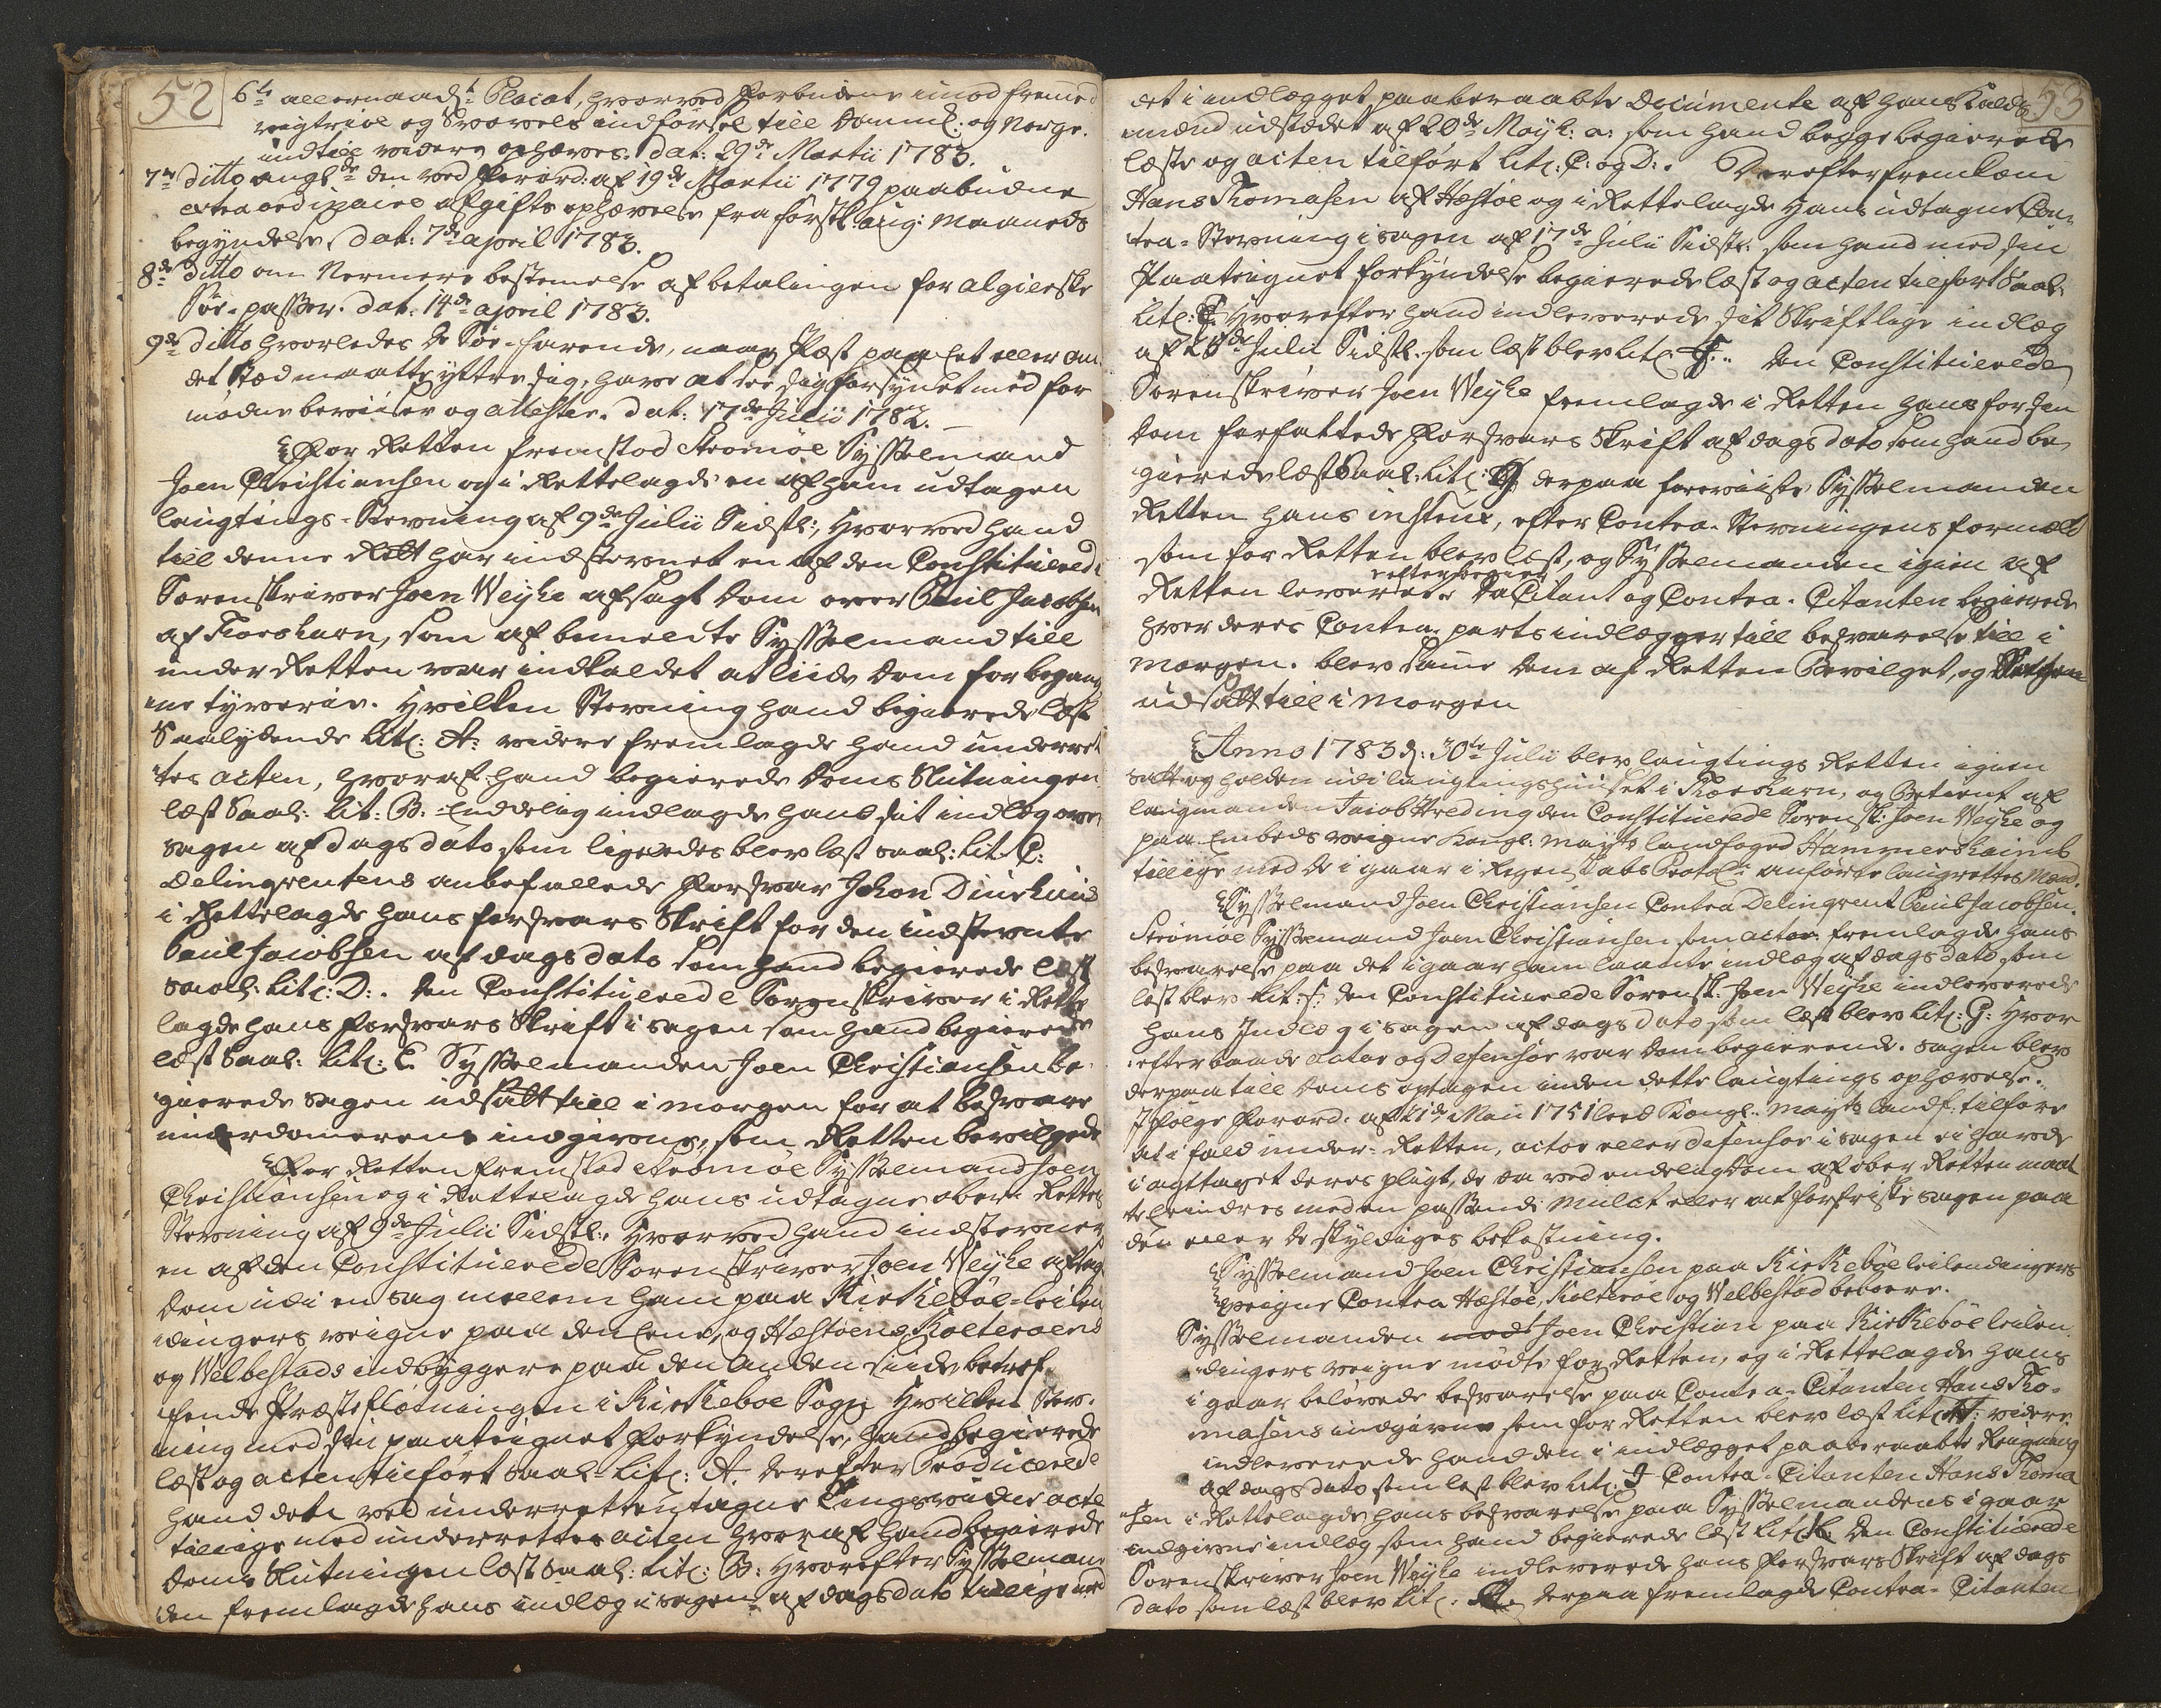 52
6te allernaadst Placat, hvorved Forbudene imod fremed
vogtriol og Svovels indførsel till Danmk: og Norge.
indtill widere ophæves. dat: 29de Martii 1783.
7de ditto angde den ved Forord: af 19de Martii 1779 paabudne
extraordinaire afgifts ophævelse fra førstk: aug: Maaneds
begyndelse, dat: 7de april 1783.
8de ditto om Nermere bestemelse af betalingen for algierske
Søe-passer. dat. 14de april 1783.
9de ditto hvorledes de Søe-farende, naar Pest paa et eller an
det stæd maatte yttre sig, have at see sig forsynet med for
nødne beviiser og attester. dat: 17de Julii 1782.
For Retten fremstod Strømøe Sysselmand
Joen Christiansen og i Rettelagde en af ham udtagen
laugtings-Stevning af 9de Julii Sidstl:, hvorved hand
till denne Rett har indstevnet en af den Constituered
Sorenskriver Joen Weyhe afsagt Dom over Poul Jacobsen
af Thorshavn, som af bemeldte Sysselmand till
under Retten var indkaldet at liide Dom for begang
ne tyverie. hvilken Stevning hand begierede læst
Saalydende Lit: A: videre fremlagde hand underret
tes acten, hvoraf hand begierede Doms Slutningen
læst Saal: Lit: B. Endelig indlagde hand sit indlæg over
sagen af dags dato som ligeledes blev læst saal: Lit C:
Delinqventens anbefallede Forsvar Johon Diurhuus
i Rettelagde hans forsvars Skrift for den indstevnte
Poul Jacobsen af dags dato som hand begierede læst
saal: Lit: D:. Den Constituerede Sorenskriver i Rette
lagde hans Forsvars Skrift i sagen som hand begierede
læst Saal: Lit: E Sysselmanden Joen Christiansen be
gierede sagen udsatt till i morgen for at besvare
underdomerens indgivne, som Retten bevilgede
For Retten fremstod Strømøe Sysselmand Joen
Christiansen og i Rettelagde hans udtagne ober Rettes
Stevning af 9de Julii Sidstl:, hvorved hand indstevner
en af den Constituerede Sorenskriver Joen Weyhe afsag
Dom udi en sag mellem ham paa Kirkebøe-leilen
dingers veigne paa den Eene, og Hæstøens Kolterøens
og Velbestads indbyggere paa den anden siide betref-
fende Præsteflotningen i Kirkeboe Sogn hvilken Stev-
ning med sin paategnet forkyndelse, hand begierede
læst og acten tilført saal- Lit: A. derefter Producerede
hand det ved underretten tagne Tingsvidne acte
tillige med underrettes acten hvoraf hand begierede
Doms Slutningen læst Saal: Lit: B: hvorefter Sysselman
den fremlagde hans indlæg i sagen af dags dato tillige med
53
det i indlægget paaberaabte Documente af hans Kalds
mænd udstædet af 20de Maÿ h: a: som hand begge begierede
læste og acten tilført Lit: C: og D:. Derefter fremkom
Hans Thomasen af Hæstøe og i Rettelagde hans udtagne Con-
tra-Stevning i sagen af 17de Julii Sidstl: som hand med sin
Paategnet forkyndelse begierede læst og acten tilført Saal:
Lit: E. hvorefter hand indleverede sit Skriftlige indlæg
af 28de Julii Sidstl. som læst blev Lit F.. den Constituerede
Sorenskriver Joen Weyhe fremlagde i Retten hans for sin
Dom forfattede Forsvars Skrift af dags dato som hand be
gierede læst Saal: Lit: G derpaa foreviiste Sysselmanden
Retten hans instrux, efter Contra-Stevningens formæld
som for Retten blev læst, og Sysselmanden igien af
Retten leveret efter begier. Da Citant og Contra-Citanten begierede
hver deres Contra-parts indlægger till besvarelse till i
morgen. blev samme dem af Retten Bevilget, og Retten
udsatt till i Morgen
Anno 1783 d: 30te Julii blev laugtings Retten igien
satt og holden udi laugtingshuuset i Thorshavn, og Betient af
laugmanden Jacob Hveding den Constituerede Sorensk: Joen Weyhe og
paa Embeds veigne Kongl: mayts landfoged Hammershaimb
tillige med de i gaar i Regenskabs Protol: anførte laugrettes Mænd.
Sysselmand Joen Christiansen Contra Delinqvent Poul Jacobsen.
Strømøe Sysselmand Joen Christiansen som actor fremlagde hans
besvarelse paa det igaar ham laante indlæg af dags dato som
læst blev Lit: F: den Constituerede Sorensk: Joen Weyhe indleverede
hans Indlæg i sagen af dags dato som læst blev Lit: G: Hvor
efter baade actor og Defensor var Dom begierende. sagen blev
derpaa till Doms optagen inden dette laugtings ophævelse.
I følge Forord. af 21de Mai 1751 lood Kongl: Mayts landf: tilføre
at i fald under-Retten, actor eller defensor i sagen ei havde
iagttaget deres pligt, de da ved endelig Dom af ober Retten maat
te lindres med en passende Mulct eller at forfriske sagen paa
den eller de skyldiges bekostning.
Sysselmand Joen Christiansen paa Kirkebøe leilendingers
veigne Contra Hæstøe, Kolterøe og Velbestad beboere.
Sysselmanden Joen Christian paa Kirkebøe leilen
dingers veigne mødte for Retten, og i Rettelagde hans
i gaar belovede besvarelse paa Contra-Citanten Hans Tho-
masens indgivne som for Retten blev læst Lit: H: videre
indleverede hand den i indlægget paaberaabte Reigning
af dags dato som læst blev Lit: I Contra-Citanten Hans Thoma
sen i Rettelagde hans besvarelse paa Sysselmandens igaar
indgivne indlæg som hand begierede læst Lit: K. Den Constituerede
Sorenskriver Joen Weyhe indleverede hans Forsvars Skrift af dags
dato som læst blev Lit: derpaa fremlagde Contra-Citanten